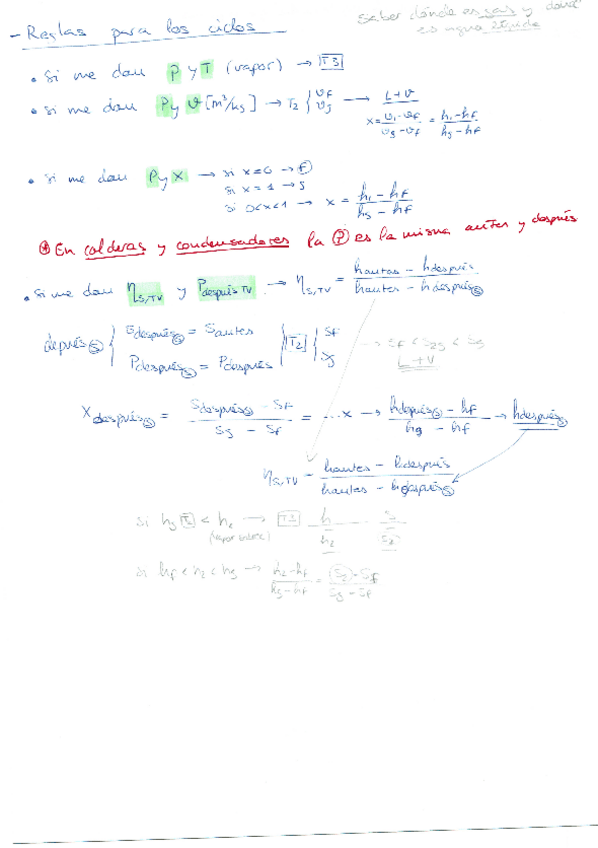 Saber dónde es gas y dónde
es agua líquida
- Reglas para los ciclos
• Si me dan P y T (vapor) → T3
• Si me dan P y v [m³/kg] → T2 { vf vg → L+V
x = (v1 - vf)/(vg - vf) = (h1 - hf)/(hg - hf)
• Si me dan P y x → si x=0 → f
si x = 1 → g
si 0<x<1 → x = (h1 - hf)/(hg - hf)
* En calderas y condensadores la P es la misma antes y después
• Si me dan ηs,TV y Pdespués TV → ηs,TV = (hantes - hdespués)/(hantes - hdespués s)
depués s { Sdespués s = Santes
Pdespués s = Pdespués } T2 { sf sg → sf < s2s < sg
L+V
xdespués s = (Sdespués s - sf)/(sg - sf) = ... x → (hdespués s - hf)/(hg - hf) → hdespués s
ηs,TV = (hantes - hdespués)/(hantes - hdespués s)
si hg T2 < h2 → T3 h s
(vapor sobrec) h2 s2
si hf < h2 < hg → (h2 - hf)/(hg - hf) = (s2 - sf)/(sg - sf)